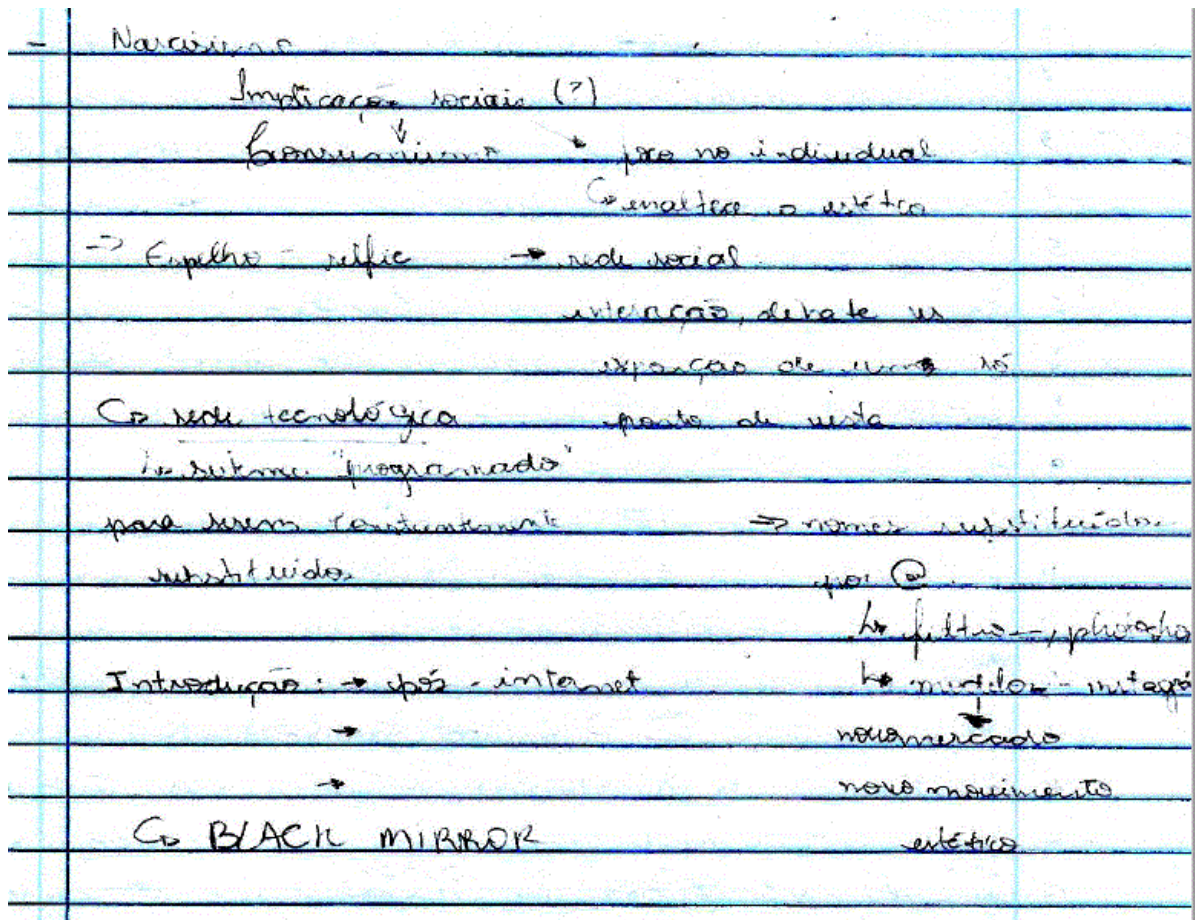 - Narcisismo
Implicações sociais (?)
↓
Consumismo → foco no individual
↳ enaltece o estético
=> Espelho - selfie → rede social
interação, debate vs
expanção de um só
ponto de vista
↳ rede tecnológica
↳ "programado"
para serem constantement
substituidos
=> nomes substituidos
por @
↳ filtro - photosho
↳ modelos - instagr
↓
novo mercado
novo movimento
estético
Introdução: → pós - internet
→
→
↳ BLACK MIRROR